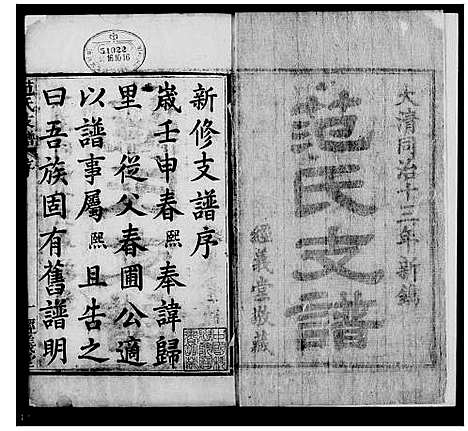 大清同治十二年新鐫
范氏支譜
經義堂敬藏
新修支譜序
歲壬申春熙奉諱歸
里　從父春圃公適
以譜事屬熙且告之
曰吾族固有舊譜明
51022
161016